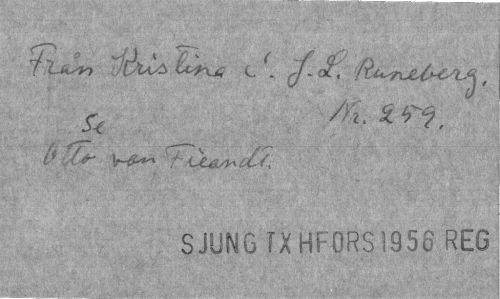 Från Kristina i J. L. Runeberg.
Nr. 259.
Se
Otto von Fieandt.
SJUNG TX HFORS 1956 REG